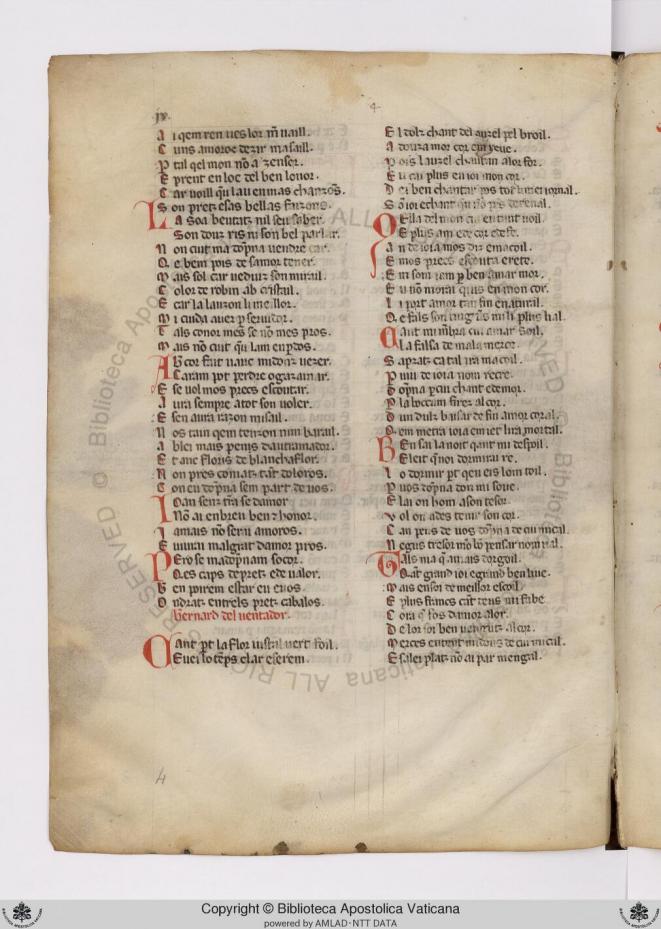 iv.
4
A i qem ren ues lor m̄ uaill.
C uns amoros dezir masaill.
P tal qel mon nō a zensor.
E prent en loc del ben lonor.
C ar uoill qu lau en mas chanzōs.
S on pretz e sas bellas faizons.
La soa beutatz nil seu saber.
Son douz ris ni son bel parlar.
N on cuit ma dōpna uendre car.
Q e bem pois de samor tener.
M ais sol car ueduiz son mirail.
C olor de robin ab cristail.
E car la lauzon li meillor.
M i cuida auer p seruidor.
T als conor mes se nō mes pros.
M ais nō cuit qu lam en pdos.
Ab cor fait uauc midonz uezer.
Caram pot perdre o gazainar.
E se uol mos precs escoutar.
A ura sempre a tot son uoler.
E sen aura razon misail.
N os tain qem tenzon nim barail.
A blei mais penis dautramador.
E tanc floris de blanchaflor.
N on pres comiat tāt doloros.
C on eu dōpna sem part de uos.
Ioan senz tr̄a se damor
Nō ai enbreu ben e honor.
I amais nō serai amoros.
E uiurai malgrat damor pros.
Pero se madopnam socor.
Qes caps de pretz e de ualor.
B en poirem estar en euos.
O ndratz entrels pretz cabalos.
Bernard del uentador.
Qant par la flor iustal uert foil.
E uei lo tēps clar e serem.
E l dolz chant del auzel pel broil.
A douza mor cor em reue.
P ois lauzel chantan a lor for.
E u cai plus en ioi mon cor.
D ei ben chantar pos tot li mei iornal.
S ō ioi e chant qu nō pes de ren al.
Qella del mon cui eu tant uoil.
E plus am e de cor e de fe.
A n de ioia mos diz e macoil.
E mos precs escouta e rete.
E m som iam p ben amar mor.
E u nō morai quis en mon cor.
L i port amor tan fin e natural.
Q e fals son tuig u͞s mi li plus lial.
Gant mi mb̄ra cui amar soil,
La falsa de mala merce.
S apzatz ca tal ira macoil.
P uiu de ioia nom recre.
D opna p cui chant e demor.
P la boccam firez al cor.
D un dulz baisar de fin amor coral.
Q em metra ioia em iet lira mortal.
Ben sai la noit qant mi despoil.
E leit qi non dormirai re.
L o dormir pt qen eis lom toil.
P uos dōpna don mi soue.
E lai on hom a son tesor.
V ol on ades tenir son cor.
C an peus de uos dōpna de cui mcal.
N egus tresor mō lo pensar nom ual.
Tals ma qi an mais dorgoil.
Qant grand ioi e grand ben liue.
M ais en soi de meillor escoil.
E plus francs cāt deus mi fai be.
C ora qi fos damor a lor.
D e lor soi ben uengutz al cor.
M erces en tant midonz de cui mical.
E sa lei platz nō ai par mengal.
4
Copyright © Biblioteca Apostolica Vaticana
powered by AMLAD-NTT DATA